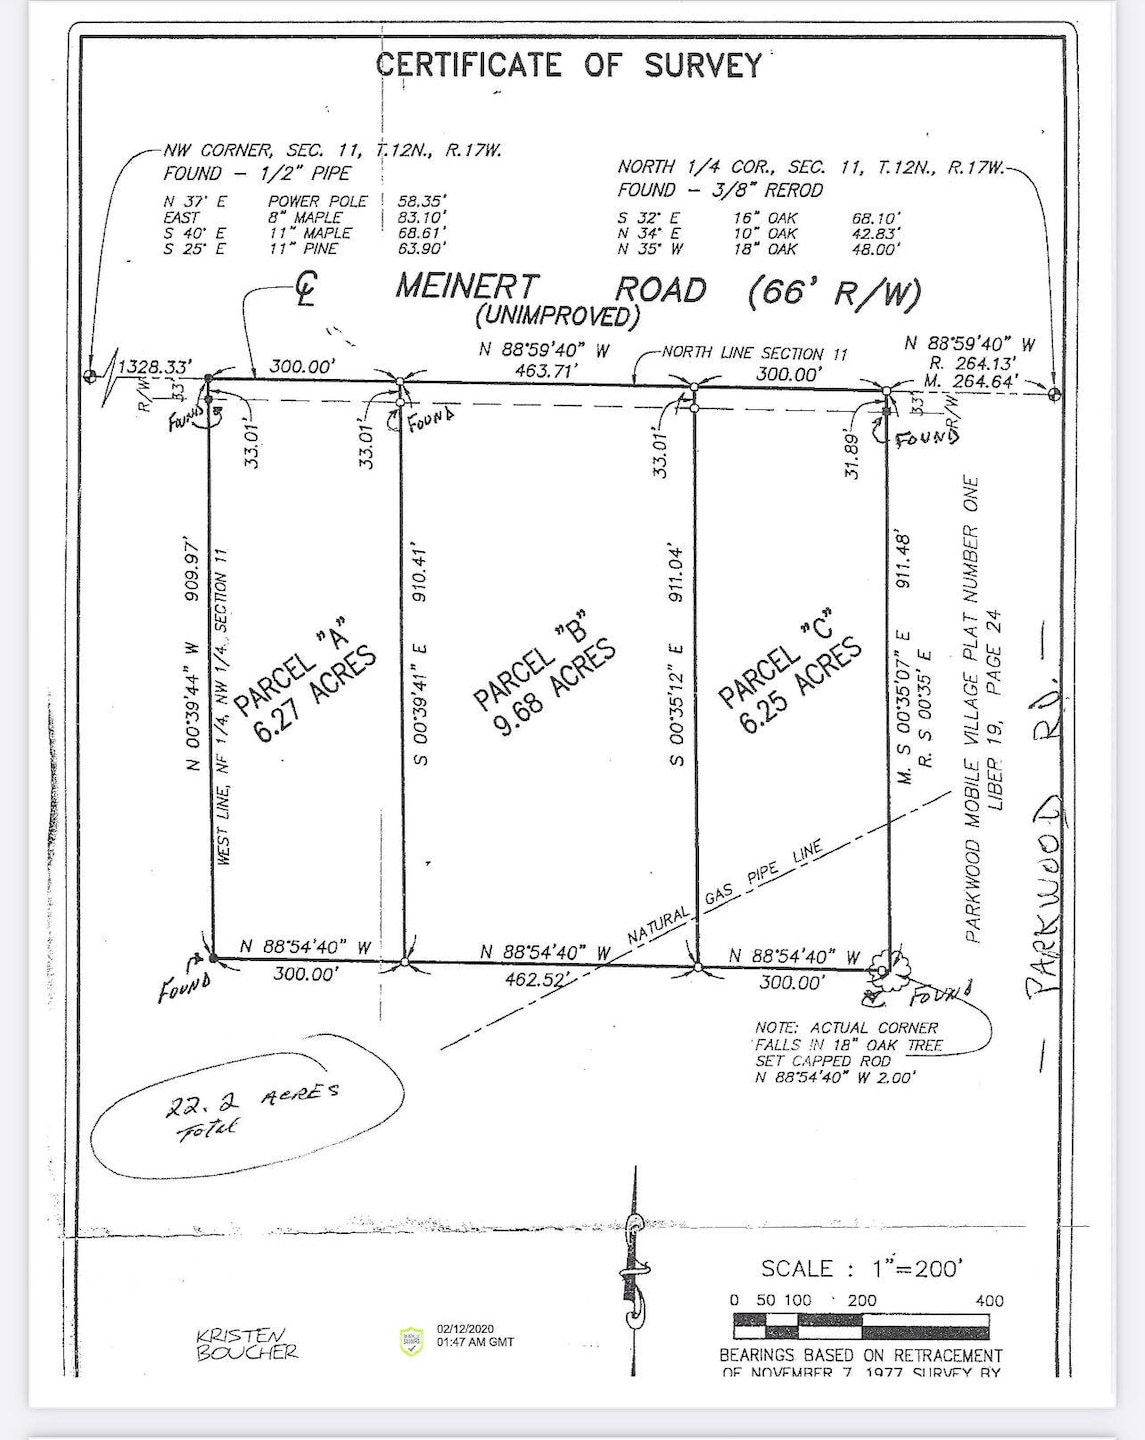 CERTIFICATE OF SURVEY
NW CORNER, SEC. 11, T.12N., R.17W.
FOUND - 1/2" PIPE
N 37° E POWER POLE 58.35'
EAST 8" MAPLE 83.10'
S 40° E 11" MAPLE 68.61'
S 25° E 11" PINE 63.90'
NORTH 1/4 COR., SEC. 11, T.12N., R.17W.
FOUND - 3/8" REROD
S 32° E 16" OAK 68.10'
N 34° E 10" OAK 42.83'
N 35° W 18" OAK 48.00'
℄ MEINERT ROAD (66' R/W)
(UNIMPROVED)
1328.33'
300.00'
N 88°59'40" W
463.71'
NORTH LINE SECTION 11
300.00'
N 88°59'40" W
R. 264.13'
M. 264.64'
R/W
33'
FOUND
33.01'
33.01'
FOUND
33.01'
31.89'
FOUND
33'
R/W
N 00°39'44" W 909.97'
WEST LINE, NF 1/4, NW 1/4, SECTION 11
PARCEL "A"
6.27 ACRES
S 00°39'41" E 910.41'
PARCEL "B"
9.68 ACRES
S 00°35'12" E 911.04'
PARCEL "C"
6.25 ACRES
M. S 00°35'07" E 911.48'
R. S 00°35' E
PARKWOOD MOBILE VILLAGE PLAT NUMBER ONE
LIBER 19, PAGE 24
- PARKWOOD RD. -
NATURAL GAS PIPE LINE
N 88°54'40" W
300.00'
N 88°54'40" W
462.52'
N 88°54'40" W
300.00'
FOUND
FOUND
NOTE: ACTUAL CORNER
FALLS IN 18" OAK TREE
SET CAPPED ROD
N 88°54'40" W 2.00'
22.2 ACRES
Total
SCALE : 1"=200'
0 50 100 200 400
BEARINGS BASED ON RETRACEMENT
OF NOVEMBER 7, 1977 SURVEY BY
KRISTEN
BOUCHER
02/12/2020
01:47 AM GMT